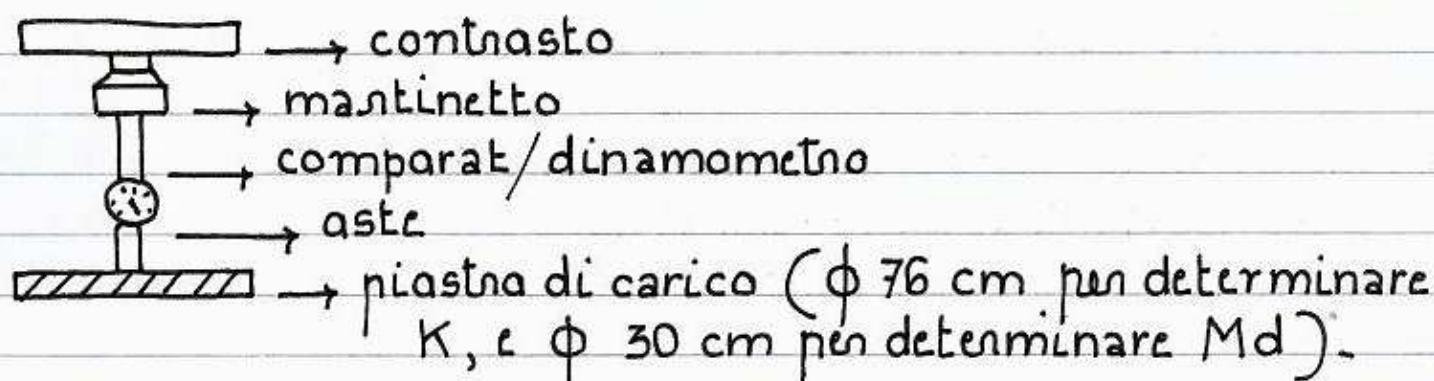 → contrasto
→ martinetto
→ comparat/dinamometro
→ aste
→ piastra di carico (ϕ 76 cm per determinare
K, e ϕ 30 cm per determinare Md).